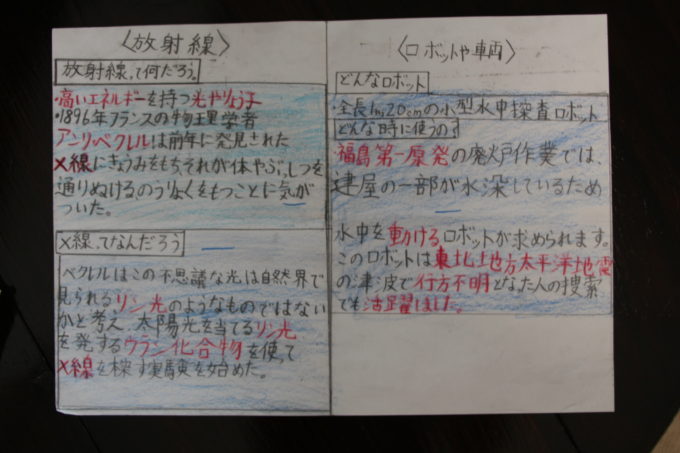 〈放射線〉
放射線って何だろう。
・高いエネルギーを持つ光やりゅう子
・1896年フランスの物理学者
アンリベクレルは前年に発見された
X線にきょうみをもち、それが体やぶっしつを
通りぬけるのうりょくをもつことに気が
ついた。
X線ってなんだろう
ベクレルはこの不思議な光は自然界で
見られるリン光のようなものではない
かと考え、太陽光を当てるリン光
を発するウラン化合物を使って
X線を探す実験を始めた。
〈ロボットや車両〉
どんなロボット
・全長1m20cmの小型水中探査ロボット
どんな時に使うの
福島第一原発の廃炉作業では、
建屋の一部が水没しているため
水中を動けるロボットが求められます。
このロボットは東北地方太平洋地震
の津波で行方不明となった人の捜索
でも活躍しました。